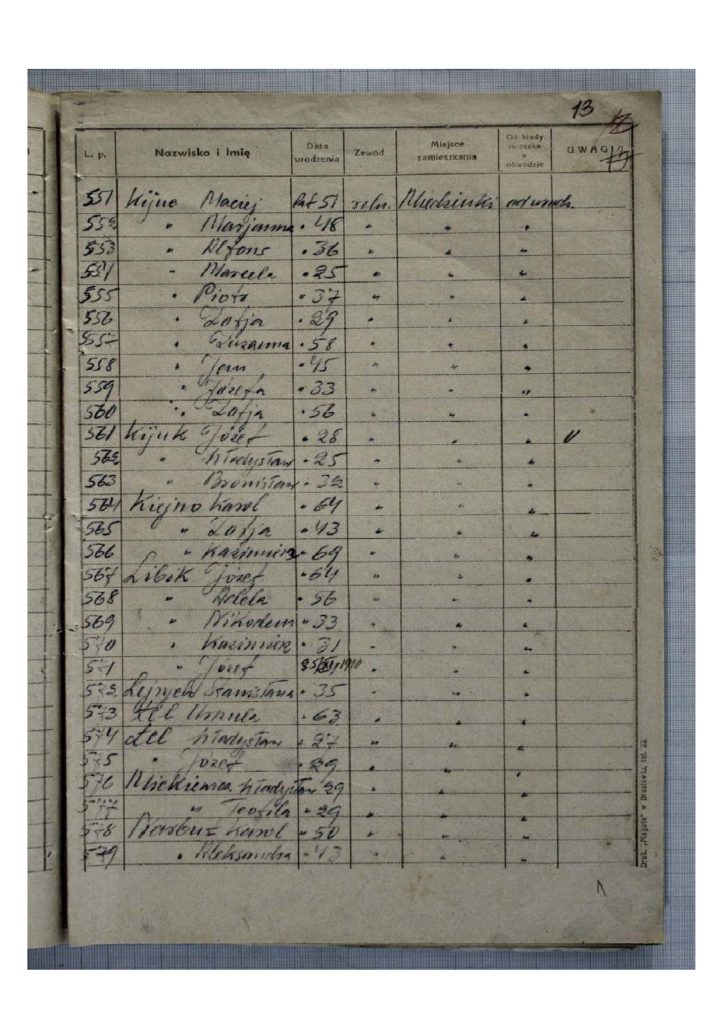 13
L. p. Nazwisko i imię Data urodzenia Zawód Miejsce zamieszkania Od kiedy mieszka w obwodzie UWAGI
551 Kijno Maciej 51 roln. od urodz.
552 " Marjanna " 48 " " "
553 " Alfons " 36 " " "
554 " Marcela " 25 " " "
555 " Piotr " 37 " " "
556 " Zofja " 29 " " "
557 " Zuzanna " 58 " " "
558 " Jan " 45 " " "
559 " Józefa " 33 " " "
560 " Zofja " 56 " " "
561 Kijuk Józef " 28 " " " V
562 " Władysław " 25 " " "
563 " Bronisław " 32 " " "
564 Kiejno Karol " 64 " " "
565 " Zofja " 43 " " "
566 " Kazimierz " 69 " " "
567 Libik Józef " 64 " " "
568 " Adela " 56 " " "
569 " Nikodem " 33 " " "
570 " Kazimierz " 31 " " "
571 " Józef 1910 " " "
572 Stanisława " 35 " " "
573 Urszula " 63 " " "
574 Władysław " 27 " " "
575 " Józef " 29 " " "
576 Mickiewicz Władysław 29 " " "
577 " Teofila " 29 " " "
578 Narbut Karol " 50 " " "
579 " Aleksandra " 43 " " "
Druk. „Magola" w Brasławiu, tel. 22.